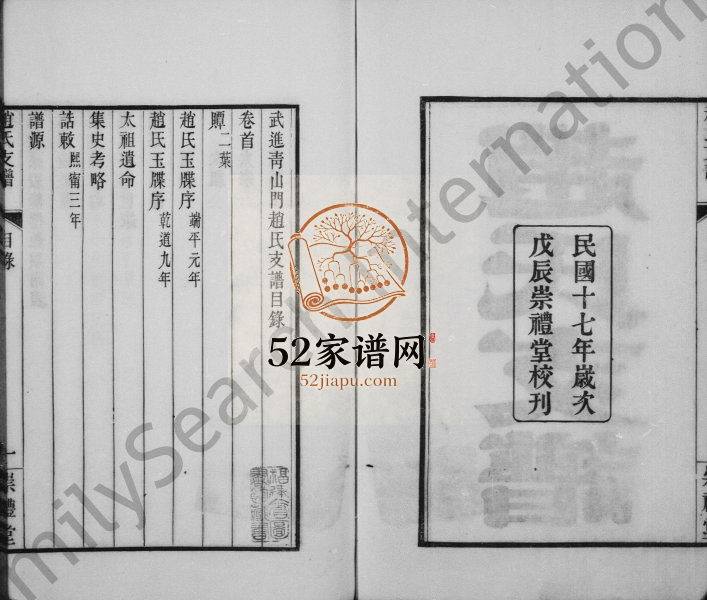 民國十七年歲次
戊辰崇禮堂校刊
武進青山門趙氏支譜目錄
卷首
賱二葉
趙氏玉牒序 端平元年
趙氏玉牒序 乾道九年
太祖遺命
集史考略
誥敕 熙甯三年
譜源
趙氏支譜 目錄 一 崇禮堂
52家谱网
52jiapu.com
FamilySearch International